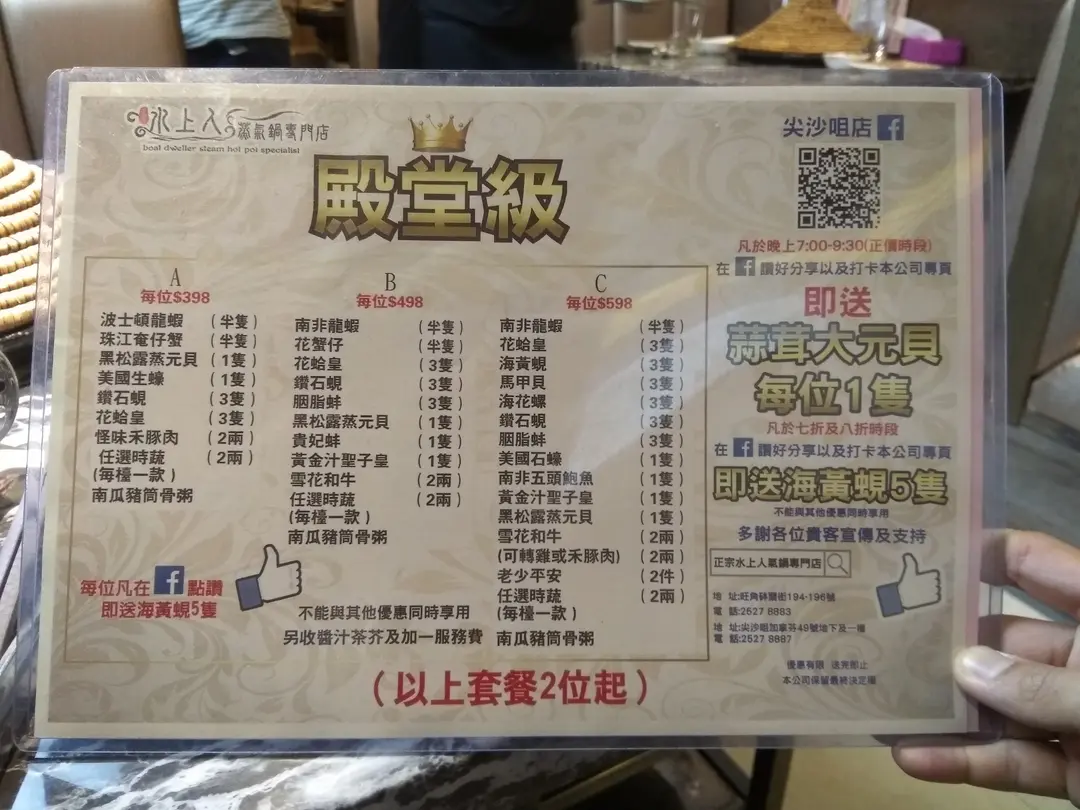 水上人
蒸氣鍋專門店
boat dweller steam hot pot specialist
殿堂級
A
每位$398
波士頓龍蝦 (半隻)
珠江奄仔蟹 (半隻)
黑松露蒸元貝 (1隻)
美國生蠔 (1隻)
鑽石蜆 (3隻)
花蛤皇 (3隻)
怪味禾豚肉 (2兩)
任選時蔬 (2兩)
(每檯一款)
南瓜豬筒骨粥
B
每位$498
南非龍蝦 (半隻)
花蟹仔 (半隻)
花蛤皇 (3隻)
鑽石蜆 (3隻)
胭脂蚌 (3隻)
黑松露蒸元貝 (1隻)
貴妃蚌 (1隻)
黃金汁聖子皇 (1隻)
雪花和牛 (2兩)
任選時蔬 (2兩)
(每檯一款)
南瓜豬筒骨粥
C
每位$598
南非龍蝦 (半隻)
花蛤皇 (3隻)
海黃蜆 (3隻)
馬甲貝 (3隻)
海花螺 (3隻)
鑽石蜆 (3隻)
胭脂蚌 (3隻)
美國石蠔 (1隻)
南非五頭鮑魚 (1隻)
黃金汁聖子皇 (1隻)
黑松露蒸元貝 (1隻)
雪花和牛 (2兩)
(可轉雞或禾豚肉) (2兩)
老少平安 (2件)
任選時蔬 (2兩)
(每檯一款)
南瓜豬筒骨粥
每位凡在 f 點讚
即送海黃蜆5隻
不能與其他優惠同時享用
另收醬汁茶芥及加一服務費
(以上套餐2位起)
尖沙咀店 f
凡於晚上7:00-9:30(正價時段)
在 f 讚好分享以及打卡本公司專頁
即送
蒜茸大元貝
每位1隻
凡於七折及八折時段
在 f 讚好分享以及打卡本公司專頁
即送海黃蜆5隻
不能與其他優惠同時享用
多謝各位貴客宣傳及支持
正宗水上人氣鍋專門店
地 址:旺角砵蘭街194-196號
電 話:2527 8883
地 址:尖沙咀加拿芬49號地下及一樓
電 話:2527 8887
優惠有限 送完即止
本公司保留最終決定權